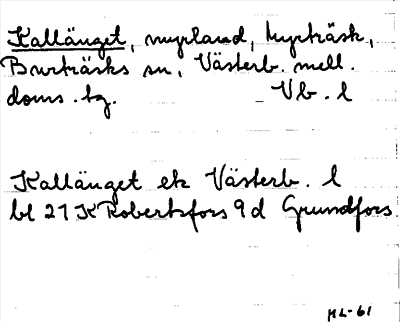 Kallänget, myrland, Myrträsk,
Burträsks sn, Västerb. mell.
doms. tg. Vb. l
Kallänget ek Västerb. l
bl 21 K Robertsfors 9 d Grundfors
ML-61